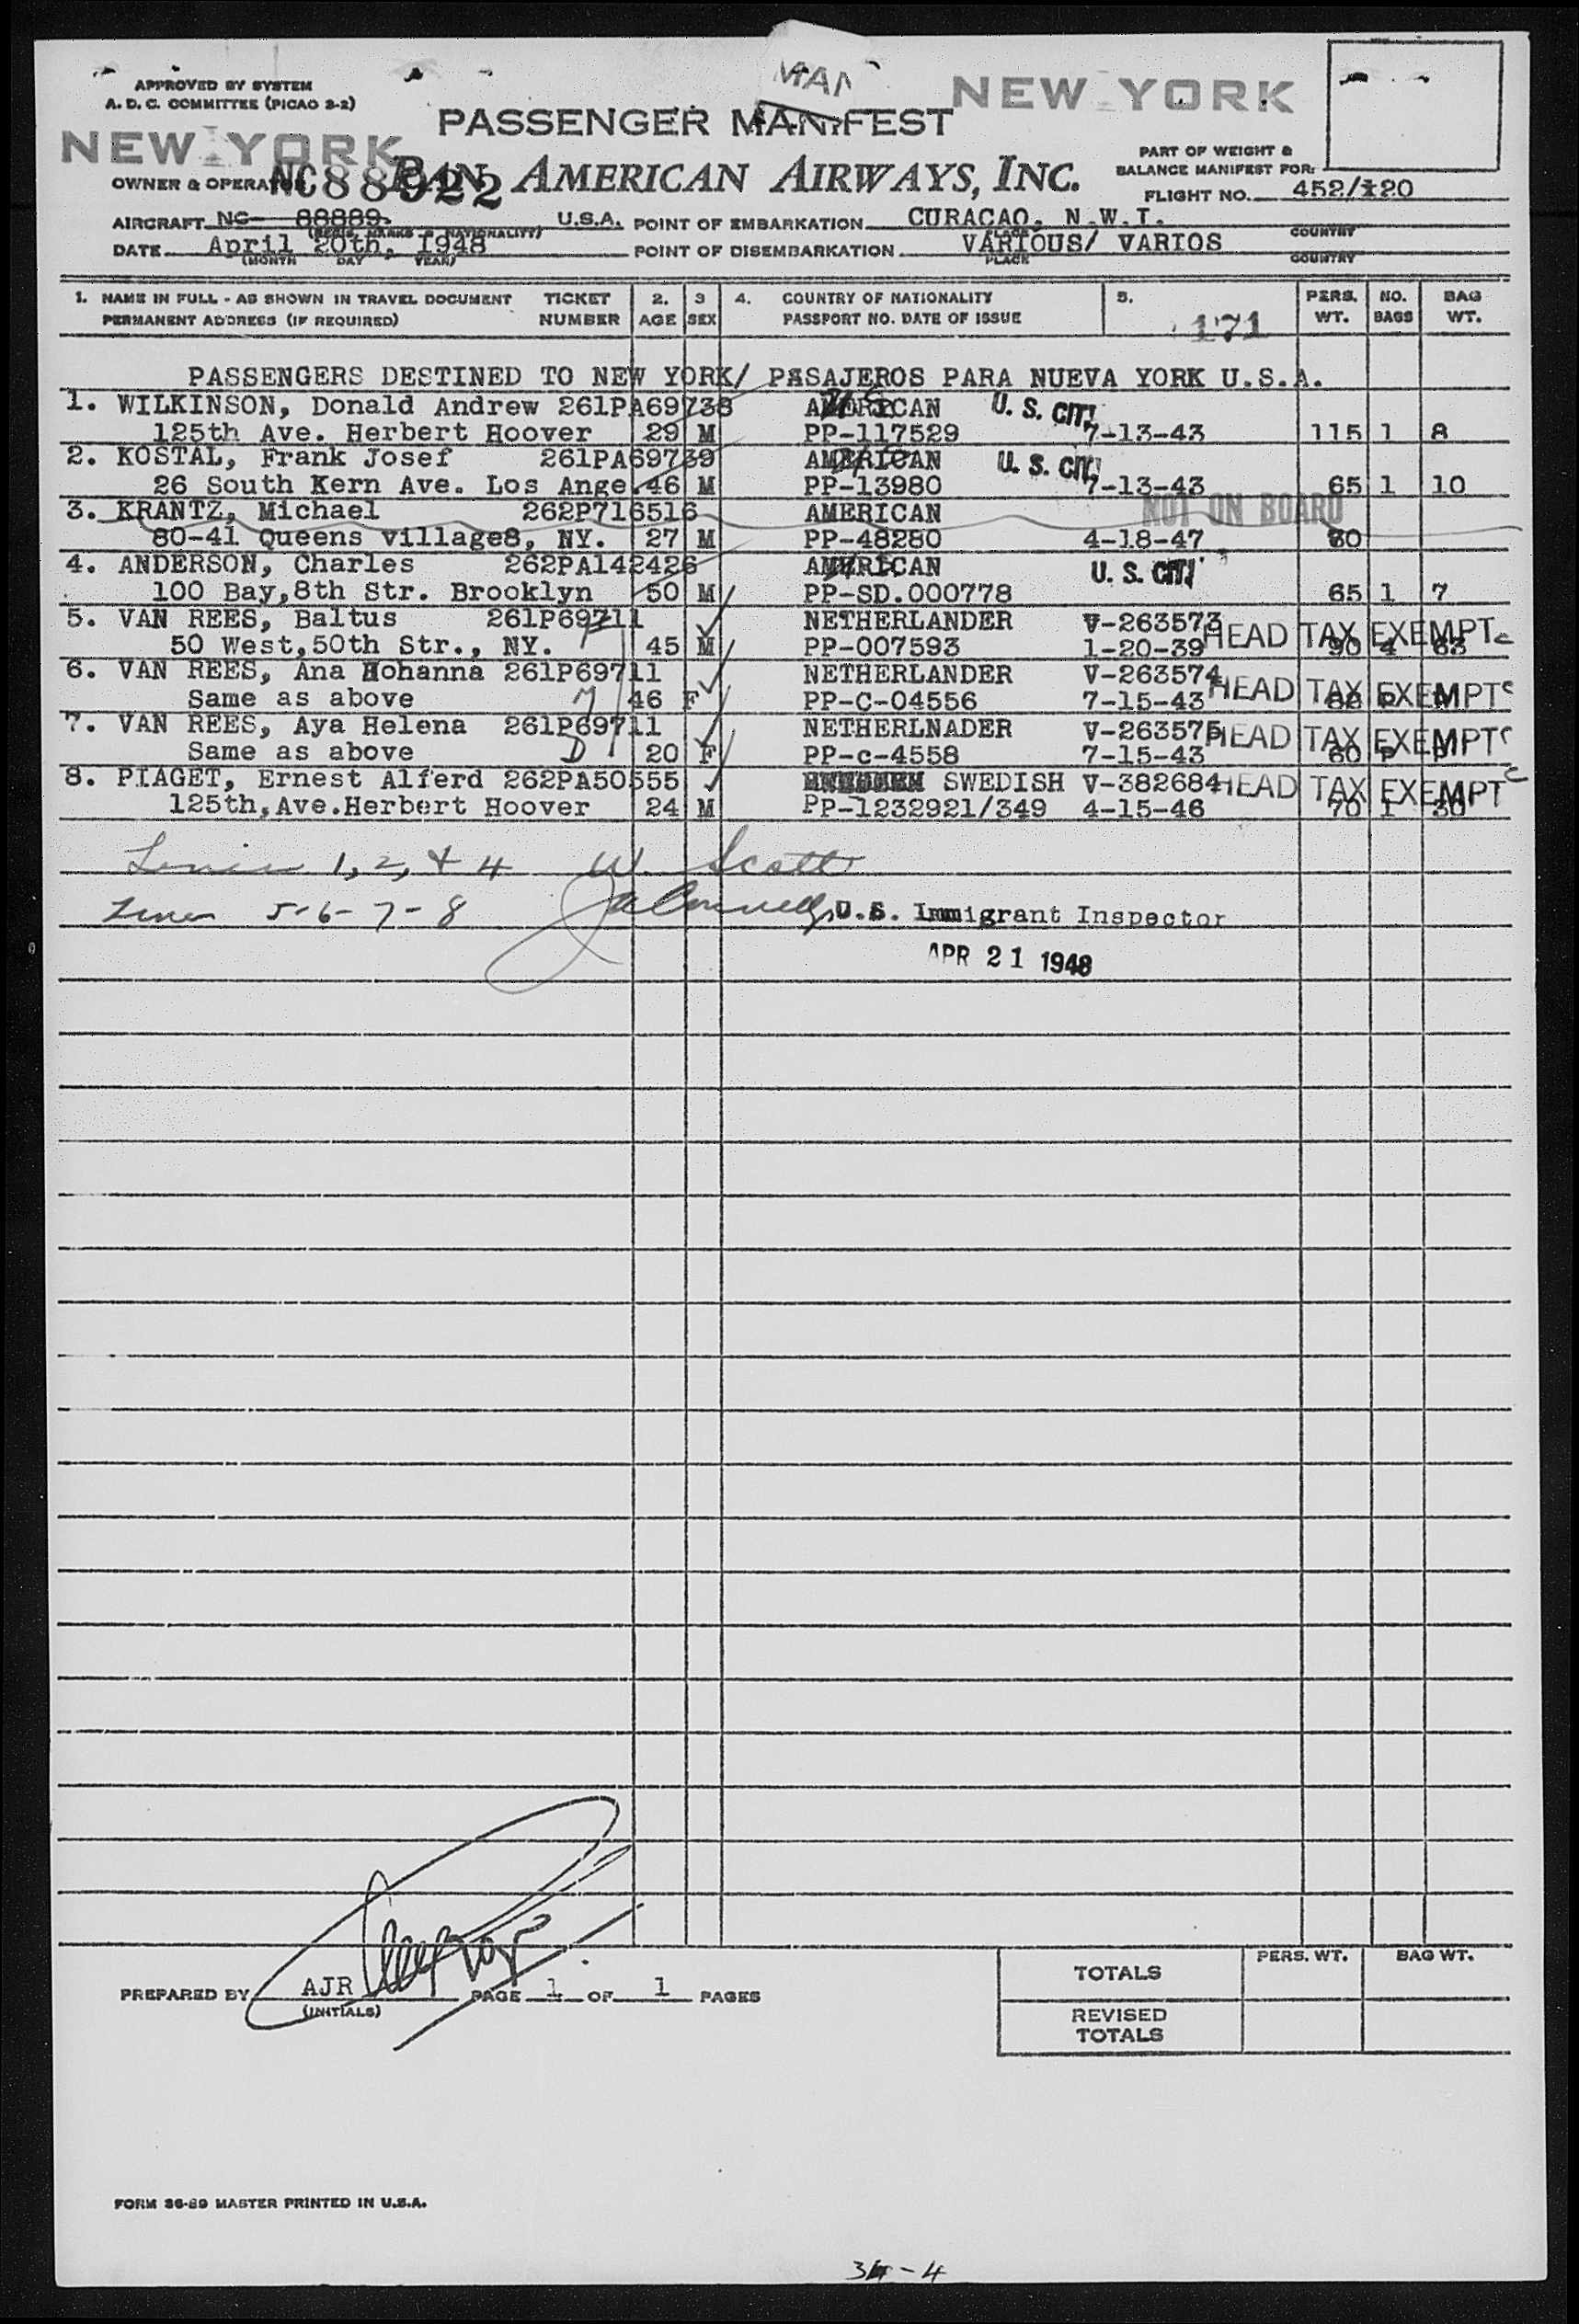 MAN
APPROVED BY SYSTEM
A. D. C. COMMITTEE (PICAO 2-2)
NEW YORK
PASSENGER MANIFEST
NEW YORK
OWNER & OPERATOR
NC88922
PAN AMERICAN AIRWAYS, INC.
PART OF WEIGHT &
BALANCE MANIFEST FOR:
FLIGHT NO. 452/120
AIRCRAFT NC- 88889. U.S.A. POINT OF EMBARKATION CURACAO, N.W.I.
(REGIS. MARKS & NATIONALITY) PLACE COUNTRY
DATE April 20th, 1948 POINT OF DISEMBARKATION VARIOUS/ VARIOS
(MONTH DAY YEAR) PLACE COUNTRY
1. NAME IN FULL - AS SHOWN IN TRAVEL DOCUMENT TICKET 2. 3 4. COUNTRY OF NATIONALITY 5. PERS. NO. BAG
PERMANENT ADDRESS (IF REQUIRED) NUMBER AGE SEX PASSPORT NO. DATE OF ISSUE WT. BAGS WT.
171
PASSENGERS DESTINED TO NEW YORK/ PASAJEROS PARA NUEVA YORK U.S.A.
1. WILKINSON, Donald Andrew 261PA69738 AMERICAN U. S. CIT.
125th Ave. Herbert Hoover 29 M PP-117529 7-13-43 115 1 8
2. KOSTAL, Frank Josef 261PA69739 AMERICAN U. S. CIT.
26 South Kern Ave. Los Ange. 46 M PP-13980 7-13-43 65 1 10
3. KRANTZ, Michael 262P716516 AMERICAN NOT ON BOARD
80-41 Queens village8, NY. 27 M PP-48280 4-18-47
4. ANDERSON, Charles 262PA142426 AMERICAN U. S. CIT.
100 Bay,8th Str. Brooklyn 50 M PP-SD.000778 65 1 7
5. VAN REES, Baltus 261P69711 NETHERLANDER V-263573 HEAD TAX EXEMPT
50 West,50th Str., NY. 45 M PP-007593 1-20-39 90 4 63
6. VAN REES, Ana Hohanna 261P69711 NETHERLANDER V-263574 HEAD TAX EXEMPT
Same as above M 46 F PP-C-04556 7-15-43
7. VAN REES, Aya Helena 261P69711 NETHERLNADER V-263575 HEAD TAX EXEMPT
Same as above D 20 F PP-c-4558 7-15-43 60 P P
8. PIAGET, Ernest Alferd 262PA50555 SWEDISH V-382684 HEAD TAX EXEMPT
125th,Ave.Herbert Hoover 24 M PP-1232921/349 4-15-46 70 1 30
Lines 1, 2, & 4 W. Scott
Lines 5-6-7-8
U.S. Immigrant Inspector
APR 21 1948
PREPARED BY AJR PAGE 1 OF 1 PAGES
(INITIALS)
PERS. WT. BAG WT.
TOTALS
REVISED
TOTALS
FORM 36-89 MASTER PRINTED IN U.S.A.